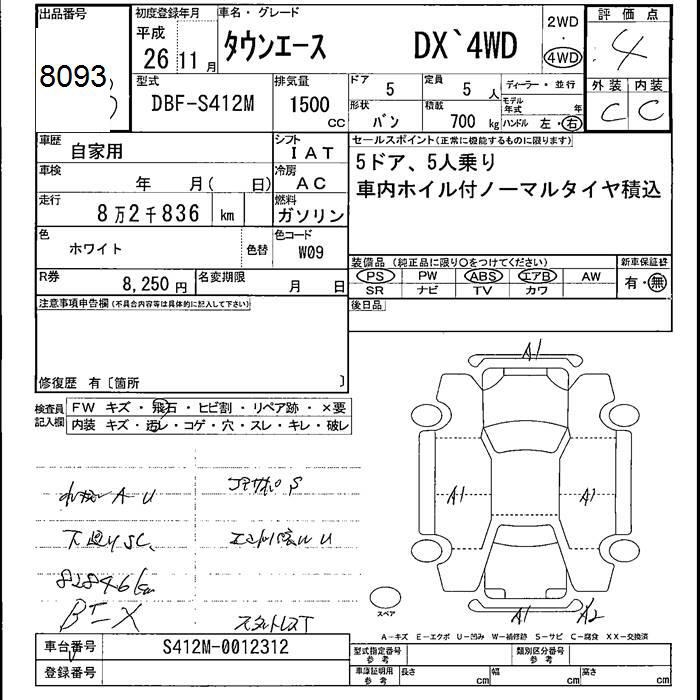 出品番号 初度登録年月 車名・グレード 2WD 評価点
平成 26 11月 タウンエース DX`4WD ・ 4WD 4
8093
型式 排気量 ドア 定員 ディーラー・並行 外装 内装
DBF-S412M 1500 CC 5 5人 モデル年式 年 C C
形状 積載 ハンドル 左・右
バン 700 kg
車歴 シフト セールスポイント(正常に機能するものに限ります)
自家用 IAT 5ドア、5人乗り
車検 冷房 車内ホイル付ノーマルタイヤ積込
年 月( 日) AC
走行 燃料
8万2千836 km ガソリン
色 色替 色コード
ホワイト W09
装備品(純正品に限り○をつけてください) 新車保証書
PS PW ABS エアB AW 有・無
SR ナビ TV カワ
R券 名変期限 後日品
8,250円 月 日
注意事項申告欄(不具合内容等は具体的に記入して下さい)
修復歴 有〔箇所 〕
検査員記入欄 FW キズ・飛石・ヒビ割・リペア跡・×要
内装 キズ・汚レ・コゲ・穴・スレ・キレ・破レ
A1
A1 A1
A U
コアサポ S
下廻りSC、
82846km
スペア
A1 A2
A-キズ E-エクボ U-凹み W-補修跡 S-サビ C-腐食 XX-交換済
車台番号 S412M-0012312 型式指定番号 参考 類別区分番号 参考
登録番号 車庫証明用 参考 長さ cm 幅 cm 高さ cm